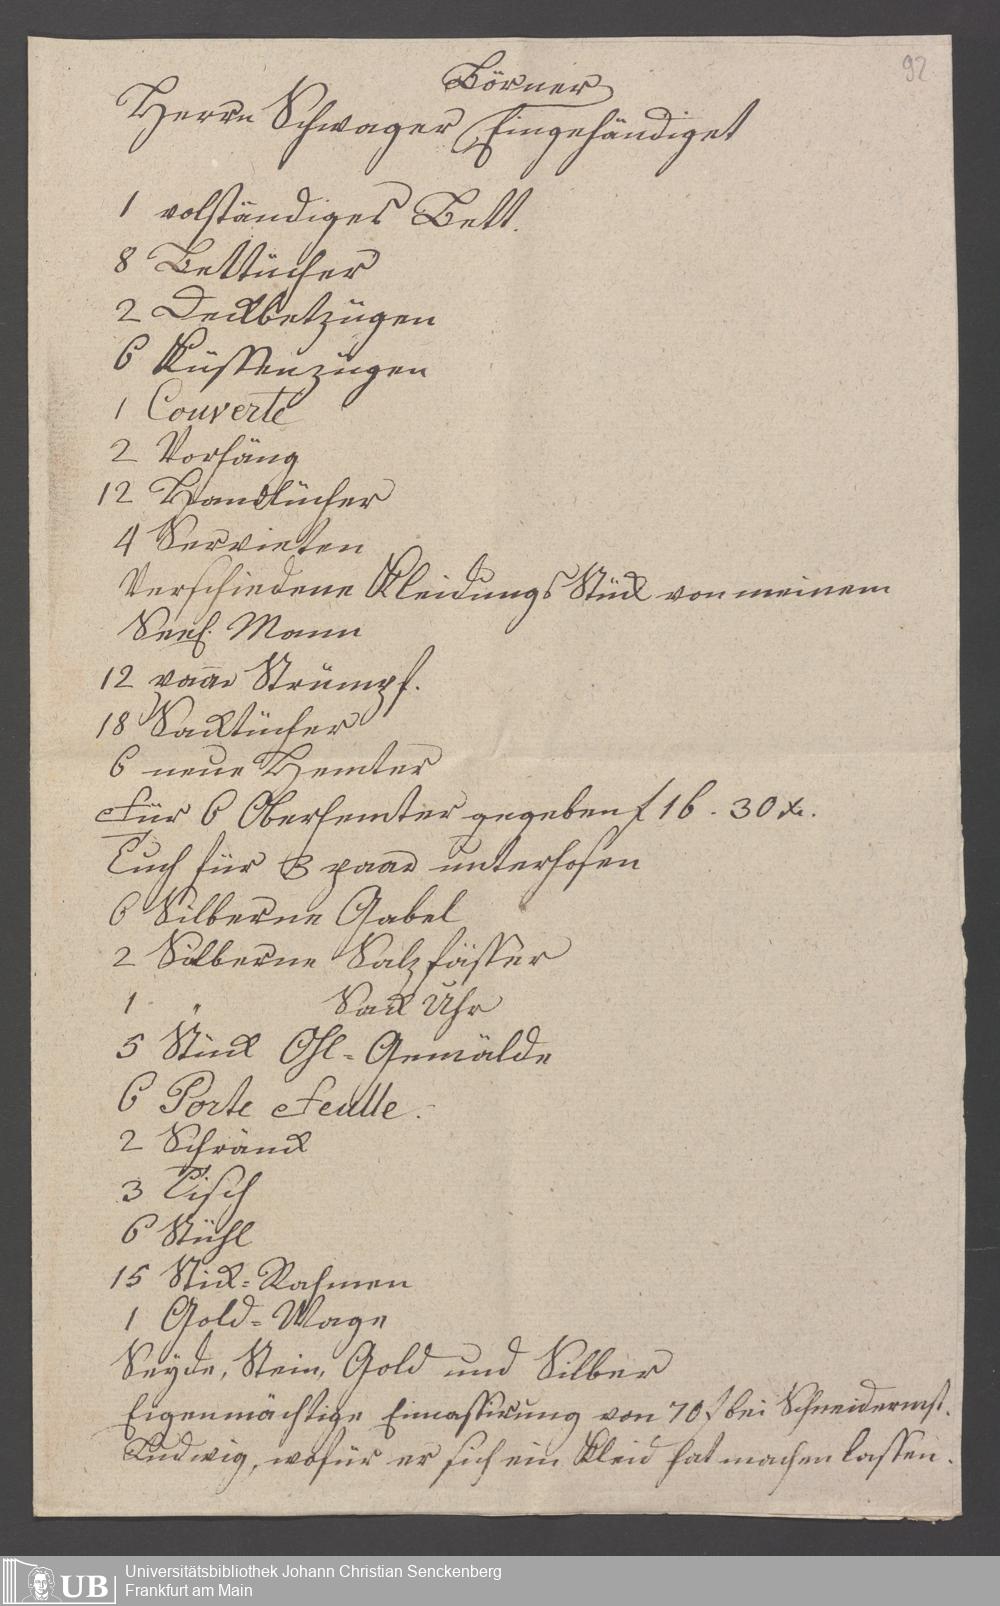 92
Börner
Herrn Schwager Eingehändiget
1 volständiges Bett.
8 Bettücher
2 Deckbetzügen
6 Küssenzügen
1 Couverte
2 Vorhäng
12 Handtücher
4 Servieten
Verschiedene Kleidungs Stück von meinem
Seel. Mann
12 paar Strümpf.
18 Sacktücher
6 neue Hemter
Für 6 Oberhemter gegeben f 16. 30 x.
Tuch für 3 paar unterhosen
6 Silberne Gabel
2 Silberne Salzfässer
1 " Sack Uhr
5 Stück Ohl-Gemälde
6 Porte Feulle.
2 Schränck
3 Tisch
6 Stühl
15 Stick-Rahmen
1 Gold-Wage
Seyde, Stein, Gold und Silber
Eigenmächtige Einnassirung von 70 f bei Schneidermst.
Ludwig, wofür er sich ein Kleid hat machen lassen.
UB
Universitätsbibliothek Johann Christian Senckenberg
Frankfurt am Main